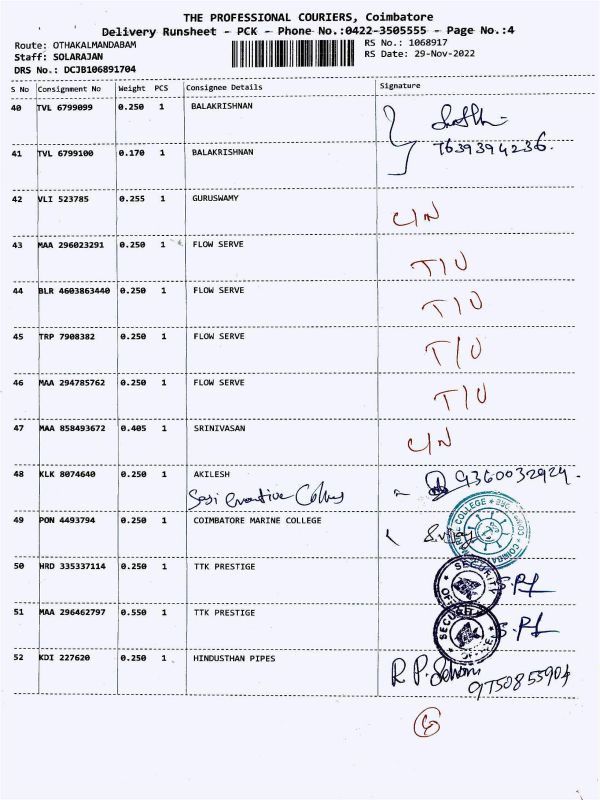 THE PROFESSIONAL COURIERS, Coimbatore
Delivery Runsheet - PCK - Phone No.:0422-3505555 - Page No.:4
Route: OTHAKALMANDABAM RS No.: 1068917
Staff: SOLARAJAN RS Date: 29-Nov-2022
DRS No.: DCJB106891704
S No Consignment No Weight PCS Consignee Details Signature
40 TVL 6799099 0.250 1 BALAKRISHNAN
7639394236.
41 TVL 6799100 0.170 1 BALAKRISHNAN
42 VLI 523785 0.255 1 GURUSWAMY C/N
43 MAA 296023291 0.250 1 FLOW SERVE T/U
44 BLR 4603863440 0.250 1 FLOW SERVE T/U
45 TRP 7908382 0.250 1 FLOW SERVE T/U
46 MAA 294785762 0.250 1 FLOW SERVE T/U
47 MAA 858493672 0.405 1 SRINIVASAN C/N
48 KLK 8074640 0.250 1 AKILESH 9360032924.
49 PON 4493794 0.250 1 COIMBATORE MARINE COLLEGE
50 HRD 335337114 0.250 1 TTK PRESTIGE SECURITY
51 MAA 296462797 0.550 1 TTK PRESTIGE SECURITY
52 KDI 227620 0.250 1 HINDUSTHAN PIPES R P. Selvam
9750855904